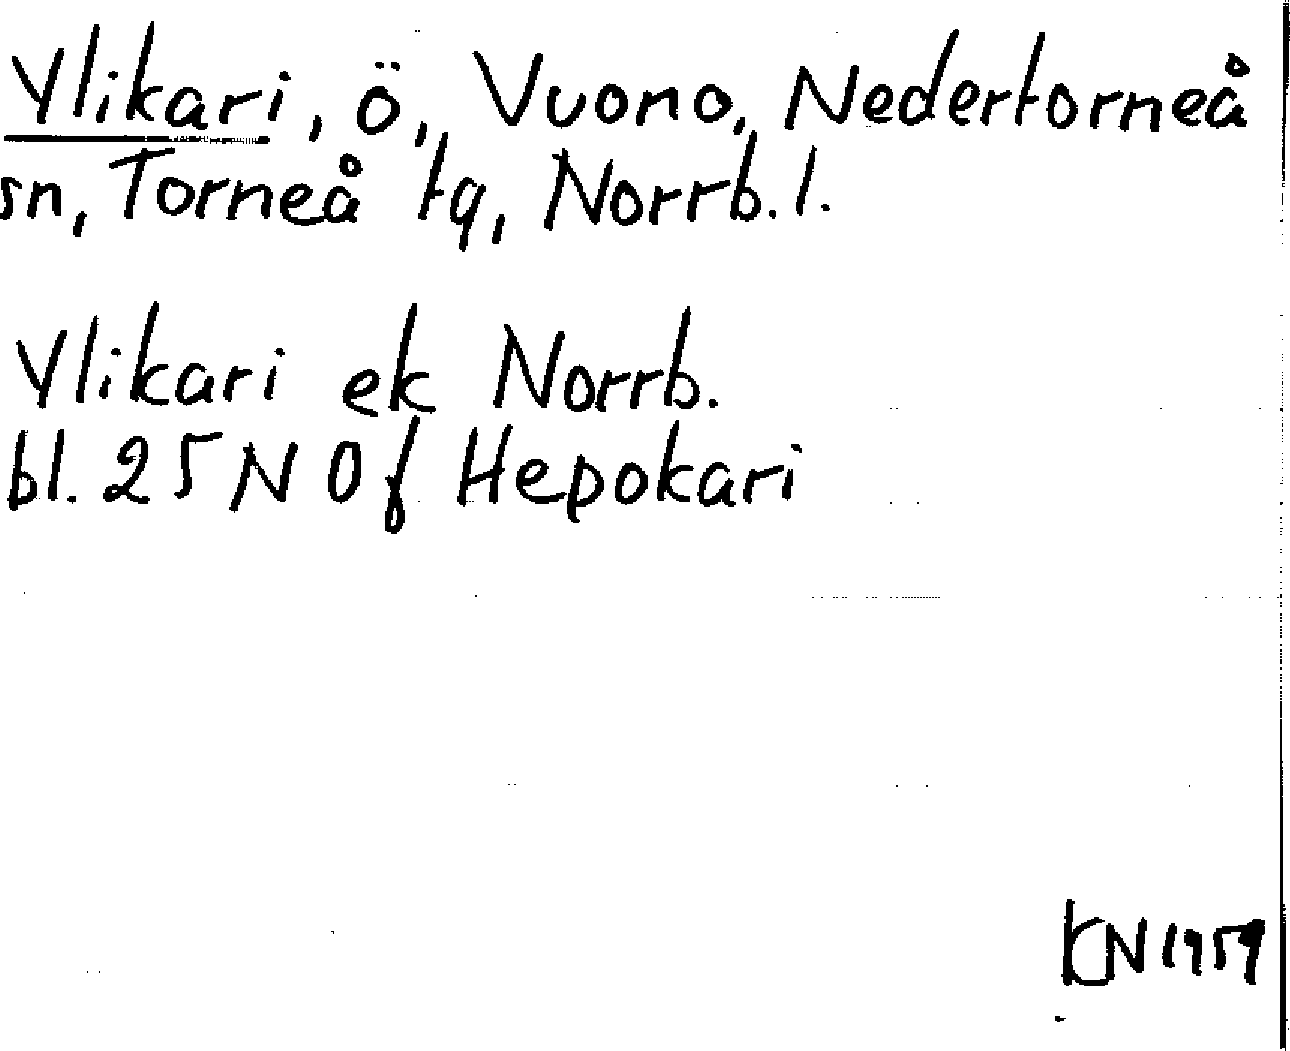 Ylikari, ö, Vuono, Nedertorneå
sn, Torneå tg, Norrb. l.
Ylikari ek Norrb.
bl. 25 N Of Hepokari
KN 1959